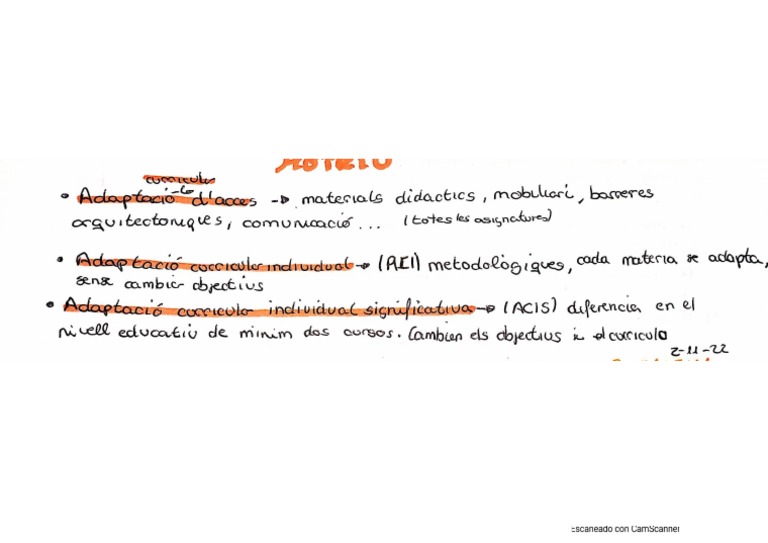 curriculo
• Adaptació d'acces -> materials didactics, mobiliari, barreres
arquitectoniques, comunicació... (totes les asignatures)
• Adaptació curriculo individual -> (ACI) metodològiques, cada materia se adapta,
sense cambiar objectius
• Adaptació curriculo individual significativa -> (ACIS) diferencia en el
nivell educatiu de minim dos cursos. Cambien els objectius i el curriculo
2-11-22
Escaneado con CamScanner